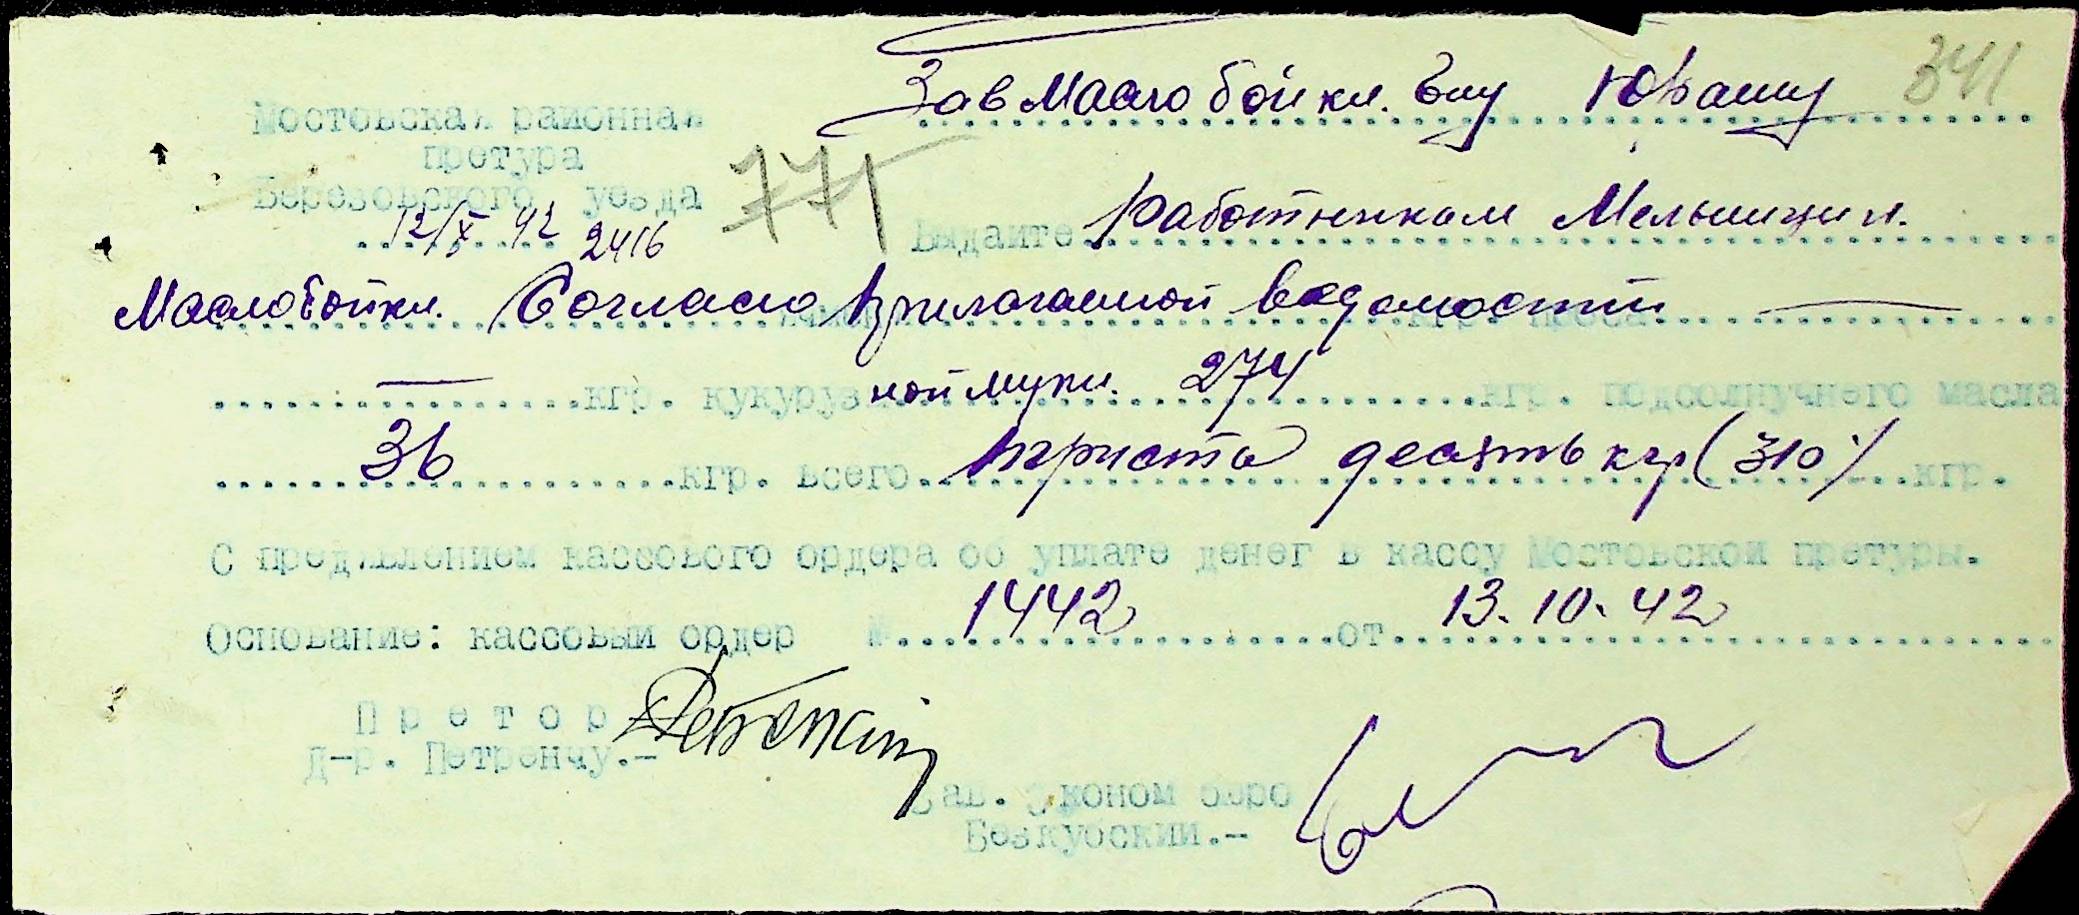 341
Зав Маслобойкл. Бку Юрашу
Мостовская районная
претура
Березовского уезда
12/X 42 2416
771
Выдайте Работникам Мельници и.
Маслобойки. Согласно прилагаемой ведомости —
— кгр. кукурузной муки. 274 кгр. подсолнучнего масла
36 кгр. всего триста десять кгр (310) кгр.
С предявлением кассового ордера об уплате денег в кассу Мостовской претуры.
Основание: кассовый ордер № 1442 от 13.10.42
Претор
Д-р. Петренчу.-
Зав. эконом бюро
Безкубский.-